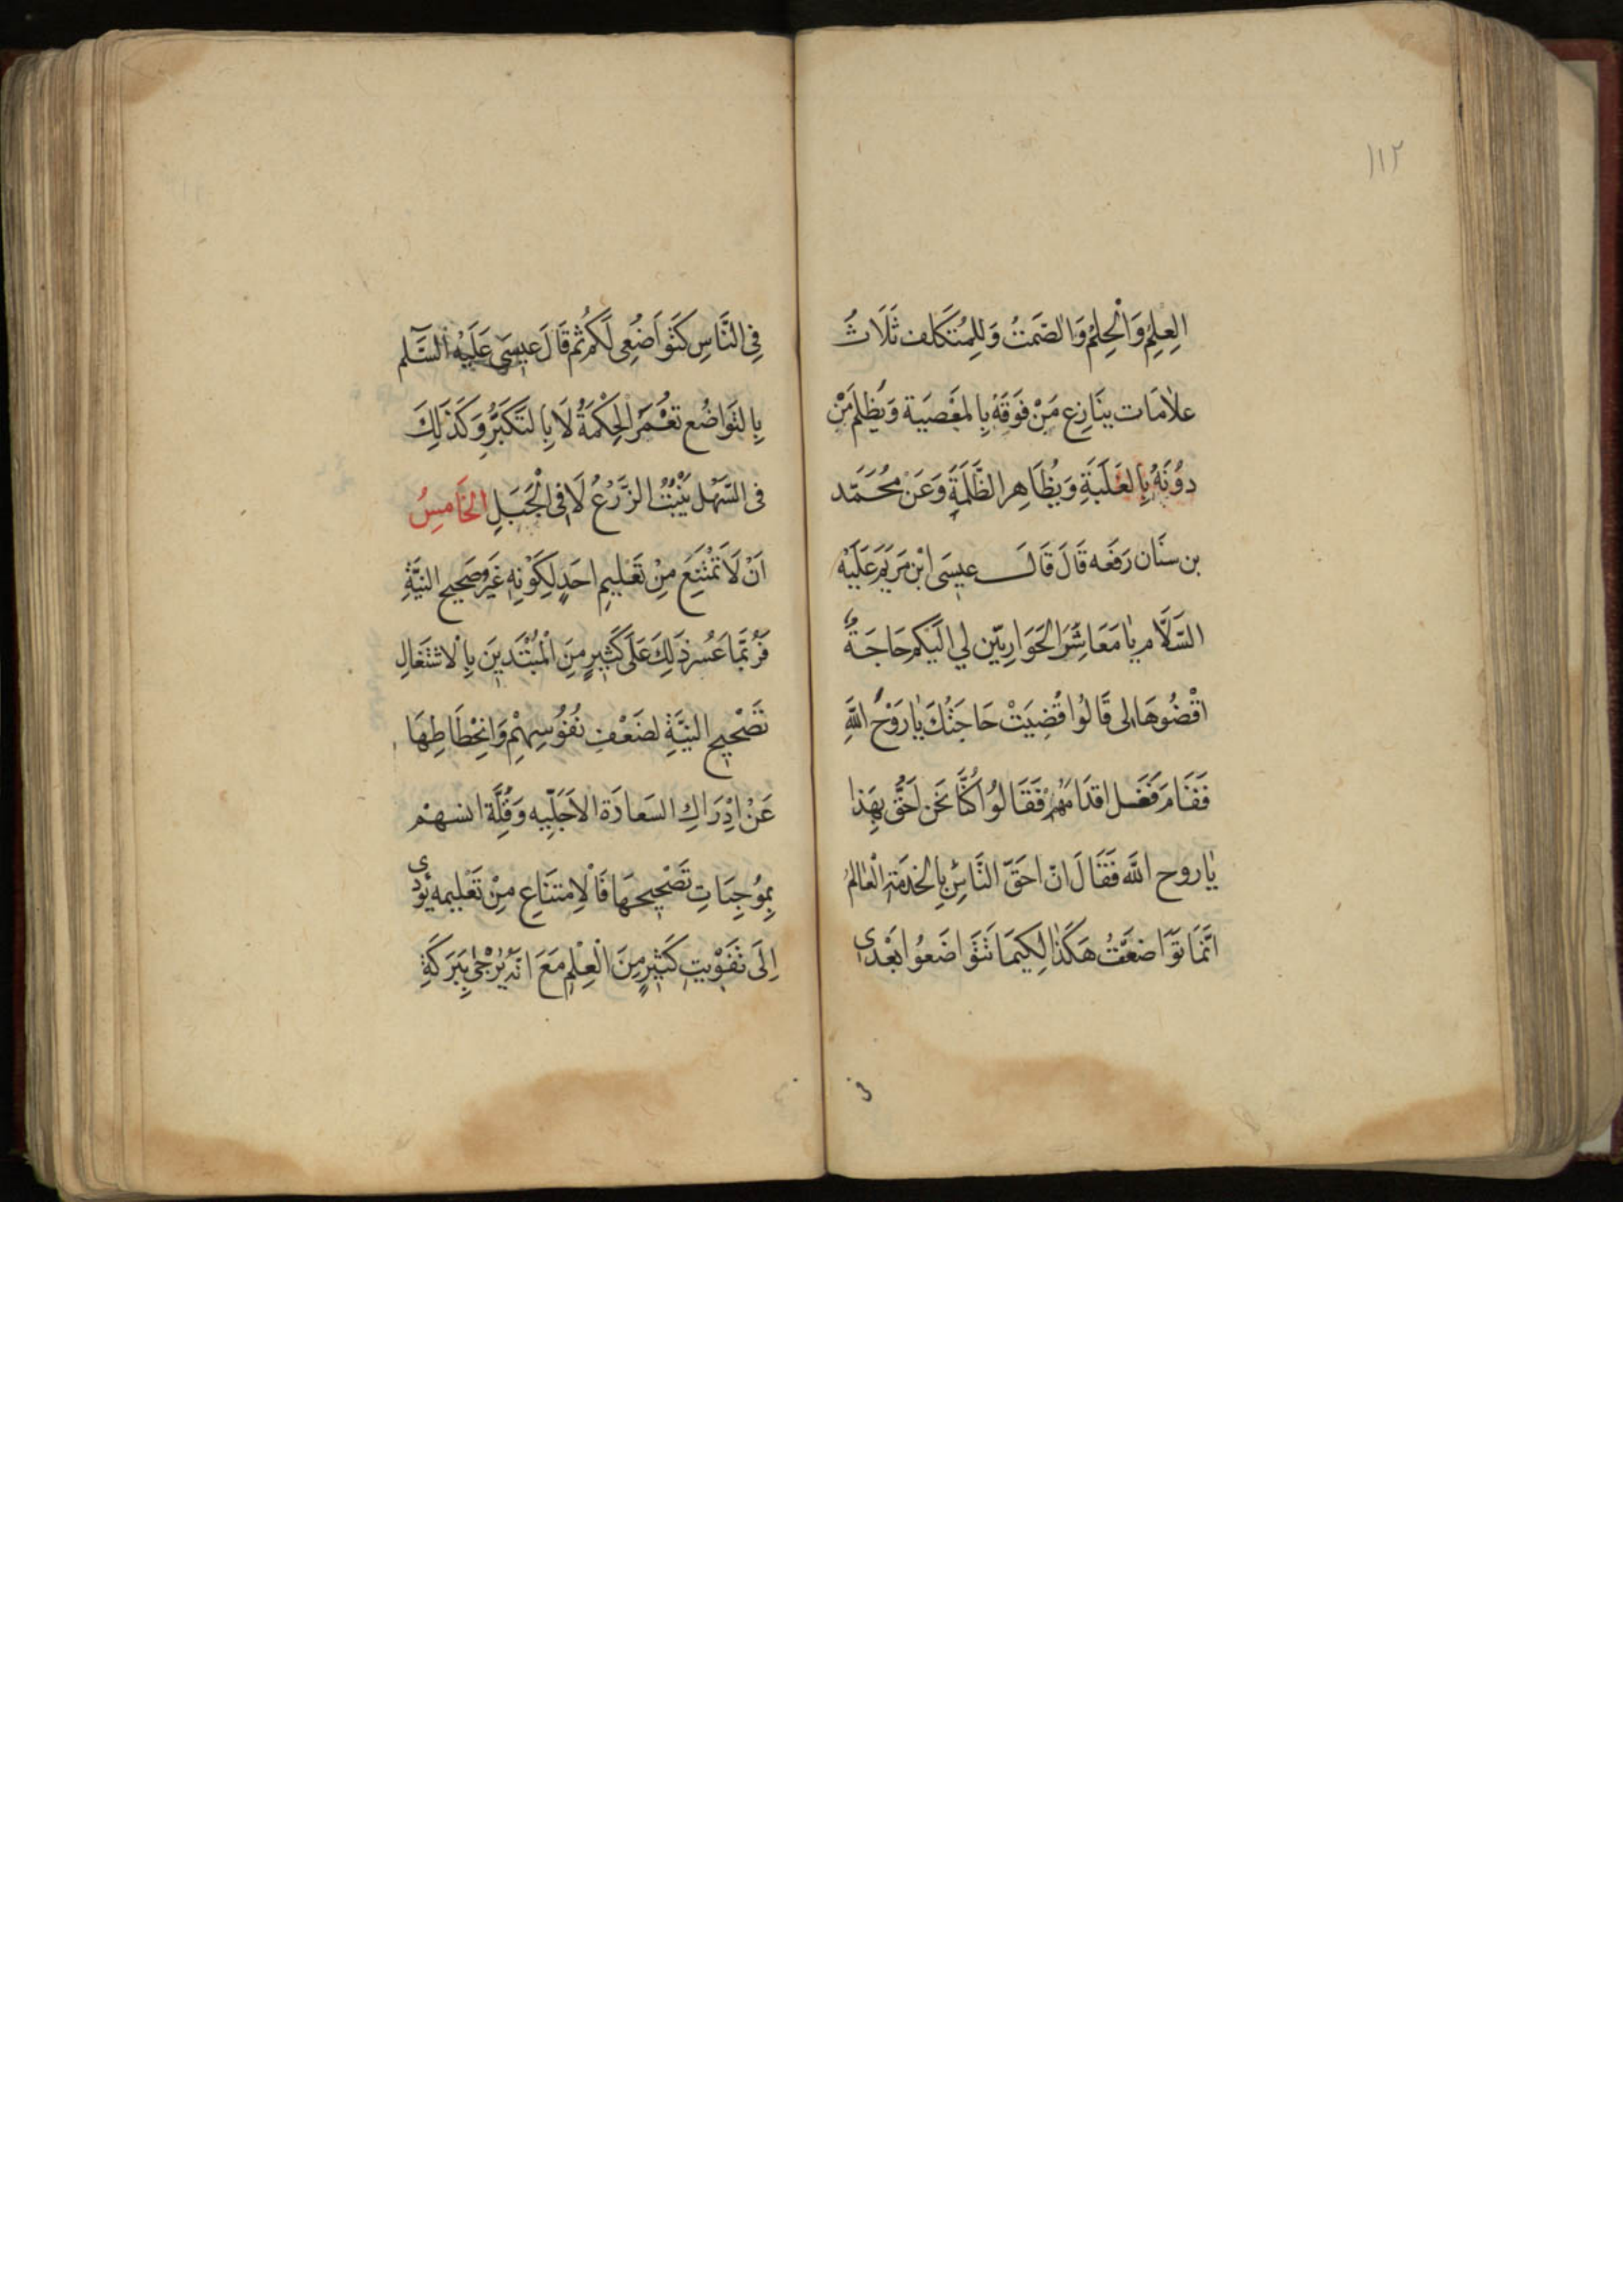 ١١٢
العِلِمُ وَالْحِلمُ وَالصَمَتُ وَلِلِمُتَكَلف ثَلَاثُ
علاٰمَات ينَازِع مَنْ فَوَقَهُ بِالمَعْصَيَة وَيَظِلَم مَنْ
دوُنَهُ بِالغَلَبَةِ وَيُظَاهِر الظَّلَمَةِ وَعَنْ مُحَمَّد
بن سنَان رَفَعَه قَالَ قَالَ عيسَى ابْن مَرَيَم عَلَيْه
السَّلَام يٰا مَعَاشَرَ الحَوَاريّين لي الَيكُم حَاجَةٌ
اقْضُوهَا لى قَالُوا قُضِيَتْ حَاجَتُكَ يٰا رَوْحَ اللَّهِ
فَقَامَ فَغَسل اقدَامَهُمْ فَقَالوُا كُنَّا نَحن احَقُّ بِهَذا
يٰا روح اللَّه فَقَالَ انّ احَقّ النَّاسِ بِالخدمَة الْعٰالمُ
انَّمَا تَوَاضعَتُ هَكَذا لِكَيمَا تَتَوَاضَعوُا بَعْدى
فى
فِى النَّاسِ كَتَوَاضُعِى لَكُم ثم قَالَ عيسَى عَلَيْه السَّلم
بِالتَوَاضُع تعُمَرُ الحِكْمَةُ لَا بِالتَكَبَّرُ وَكَذَلِكَ
فى السَّهْل يَنْبُتُ الزَّرْعُ لَا فِى الْجَبَلِ الخَامسُ
اَنْ لَا تَمْتَنِعَ مِنْ تَعَليمِ احَدٍ لِكَوْنِهِ غَيْرُ صَحيح النيَّةِ
فَرُبَّمَا عَسُر ذَلِكَ عَلَى كَثيرٍ مِنَ الْمُبْتَديَن بِالْاشتغَالِ
تَصْحيِح النيَّةِ لضَعْفِ نُفُوُسِهِمْ وَانْحِطَاطِهَا
عَنْ اِدْرَاكِ السَعادَة الاَجَلّيِه وَقِلَّة انسهمْ
بِموُجِبَاتِ تَصْحيحهَا فَالْاِمتنَاعِ مِنْ تَعْليمِه يُؤدى
اِلَى تَفَوْيتِ كَثيرٍ مِنَ الْعِلِم مَعَ انّهُ يُرْجٰى بِبَرَكَةِ